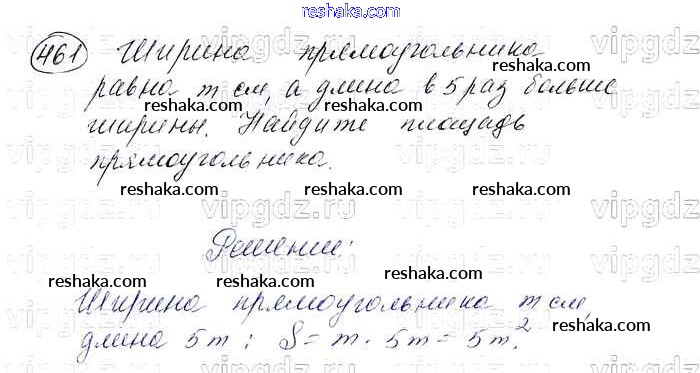 reshaka.com
461 Ширина прямоугольника
равна m см, а длина в 5 раз больше
ширины. Найдите площадь
прямоугольника.
reshaka.com reshaka.com reshaka.com
vipgdz.ru vipgdz.ru vipgdz.ru
Решение:
reshaka.com reshaka.com reshaka.com
Ширина прямоугольника m см,
длина 5m; S = m · 5m = 5m².
reshaka.com reshaka.com reshaka.com